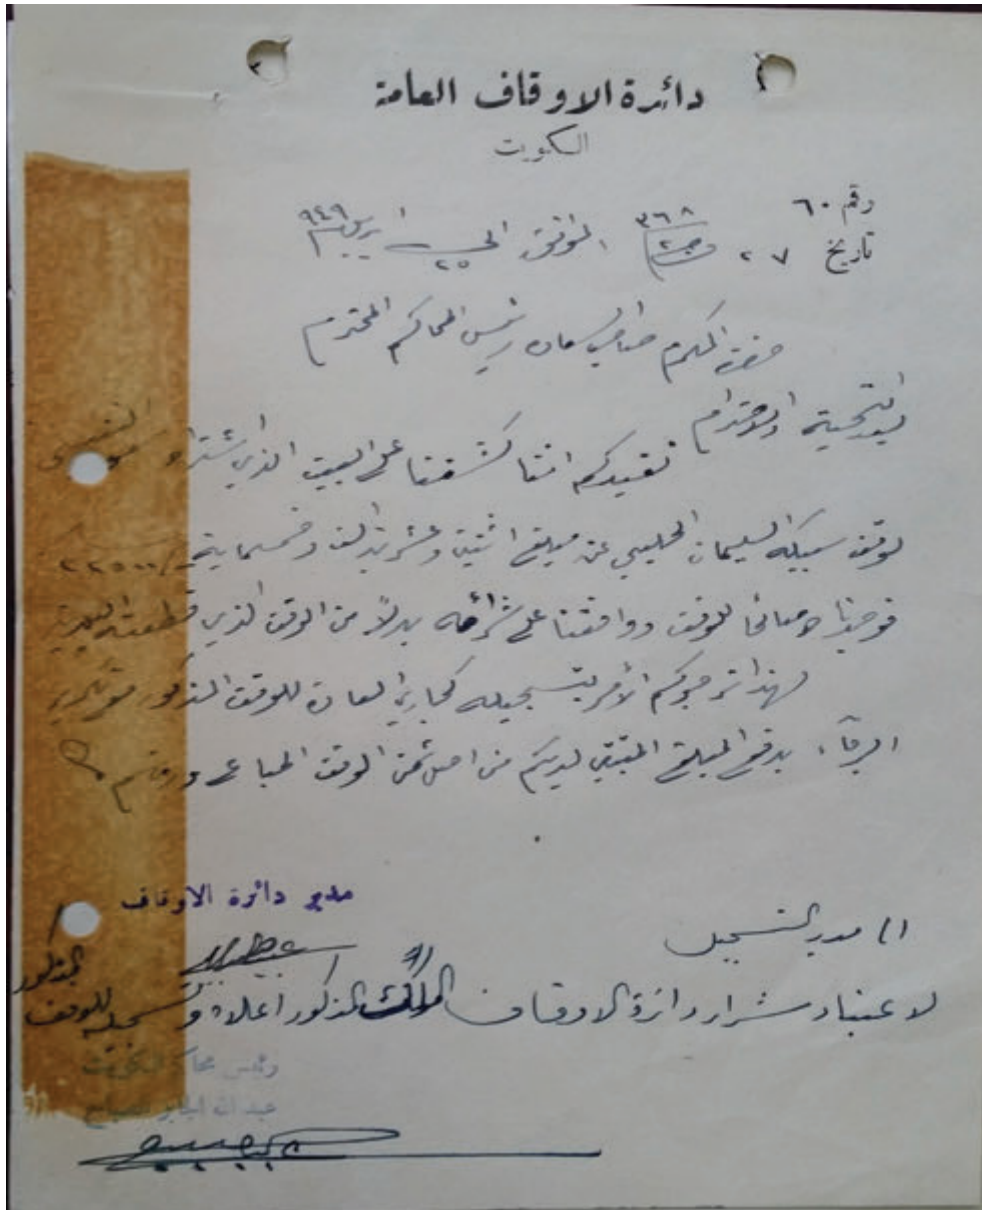 دائرة الاوقاف العامة
الكويت
رقم ٦٠
تاريخ ٢٧ رجب ٣٦٨ الموافق ٢٥ ٩٤٩
حضرة المكرم صاحب السعادة رئيس المحاكم المحترم
بعد التحية والاحترام
نفيدكم اننا كشفنا على البيت الذي اشتراه
لوقف سبيكه السليمان الحليبي عن مبلغ اثنين وعشرين الف وخمسماية ٢٢٥٠٠
فوجدنا صالحا للوقف ووافقنا على شرائه بدلاً من الوقف الذي قطعته البلدية
لهذا نرجوكم الأمر بتسجيله كجاري العادة للوقف المذكور
الرجاء بدفع المبلغ المتبقي لديكم من اصل ثمن الوقف المباع ودمتم
مدير دائرة الاوقاف
الى مدير التسجيل
لاعتماد شراء دائرة الاوقاف الملك المذكور اعلاه وتسجيله للوقف المذكور
رئيس محاكم الكويت
عبدالله الجابر الصباح